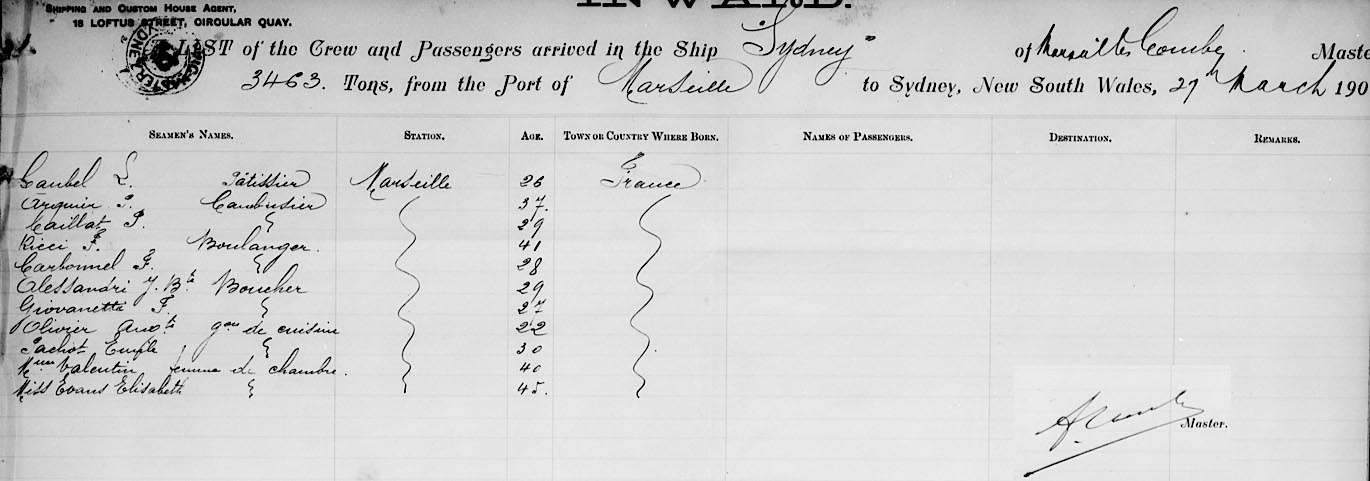 Shipping and Custom House Agent,
18 Loftus Street, Circular Quay.
INWARD.
LIST of the Crew and Passengers arrived in the Ship "Sydney" of Marseilles Master
3463 Tons, from the Port of Marseille to Sydney, New South Wales, 27th March 190
Seamen's Names. Station. Age. Town or Country Where Born. Names of Passengers. Destination. Remarks.
Caubel L. Pâtissier Marseille 26 France
Arquier P. Cambusier 37.
Caillat P. " 29
Ricci F. Boulanger. 41
Carbonnel F. " 28
Alessandri J. Bte Boucher 29
Giovanetti F. " 27
Olivier gon de cuisine 22
Pachot " 30
Mme Valentin femme de chambre. 40
Miss Evans Elisabeth " 45.
Master.